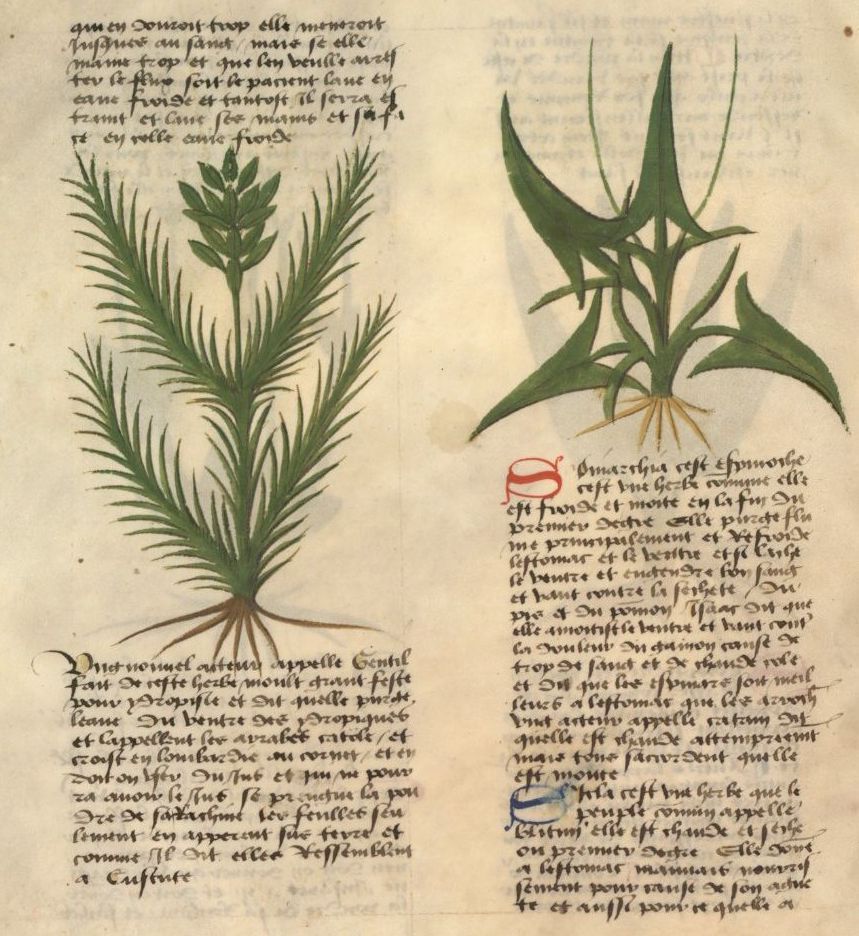 qui en douroit trop elle menroit
Jusques au sang / mais se elle
maine trop et que len veulle arres
ter le flux soit le pacient laue en
eaue froide et tantost Il serra es
traint et laue ses mains et sa fa
ce en celle eaue froide
Ung nouuel acteur appelle Gentil
fait de ceste herbe moult grant feste
pour ydropisie et dit quelle purge
leaue du ventre des ydropiques
et lappellent les arrabes catele / et
croist en lombardie au cornet / et en
doit on vser du Jus et qui ne pour
ra auoir le Jus se prengne la pou
dre de sa Rachine les feulles seu
lement en apperent sus terre et
comme Il dit elles Ressemblent
a Cuscute
Spinarchia cest espinoche
cest vne herbe comme elle
est froide et moite en la fin du
premier degre Elle purge fleu
me principalement et Refroide
lestomac et le ventre et si lache
le ventre et engendre bon sang
et vaut contre la secheté / Du
pis et du pomon Isaac dit que
elle amoitist le ventre et vaut cont
la douleur du gauion cause de
trop de sang et de chaude cole
et dit que les espinars sont meil
leurs a lestomac que les arroch
vng acteur appelle dit
quelle est chaude attempreement
mais tous sacordent quelle
est moite
Sicla cest vne herbe que le
peuple comun appelle
blitum elle est chaude et seche
ou premier degre Elle done
a lestomac mauuais nourris
sement pour cause de son ague
te et aussi pour ce quelle a